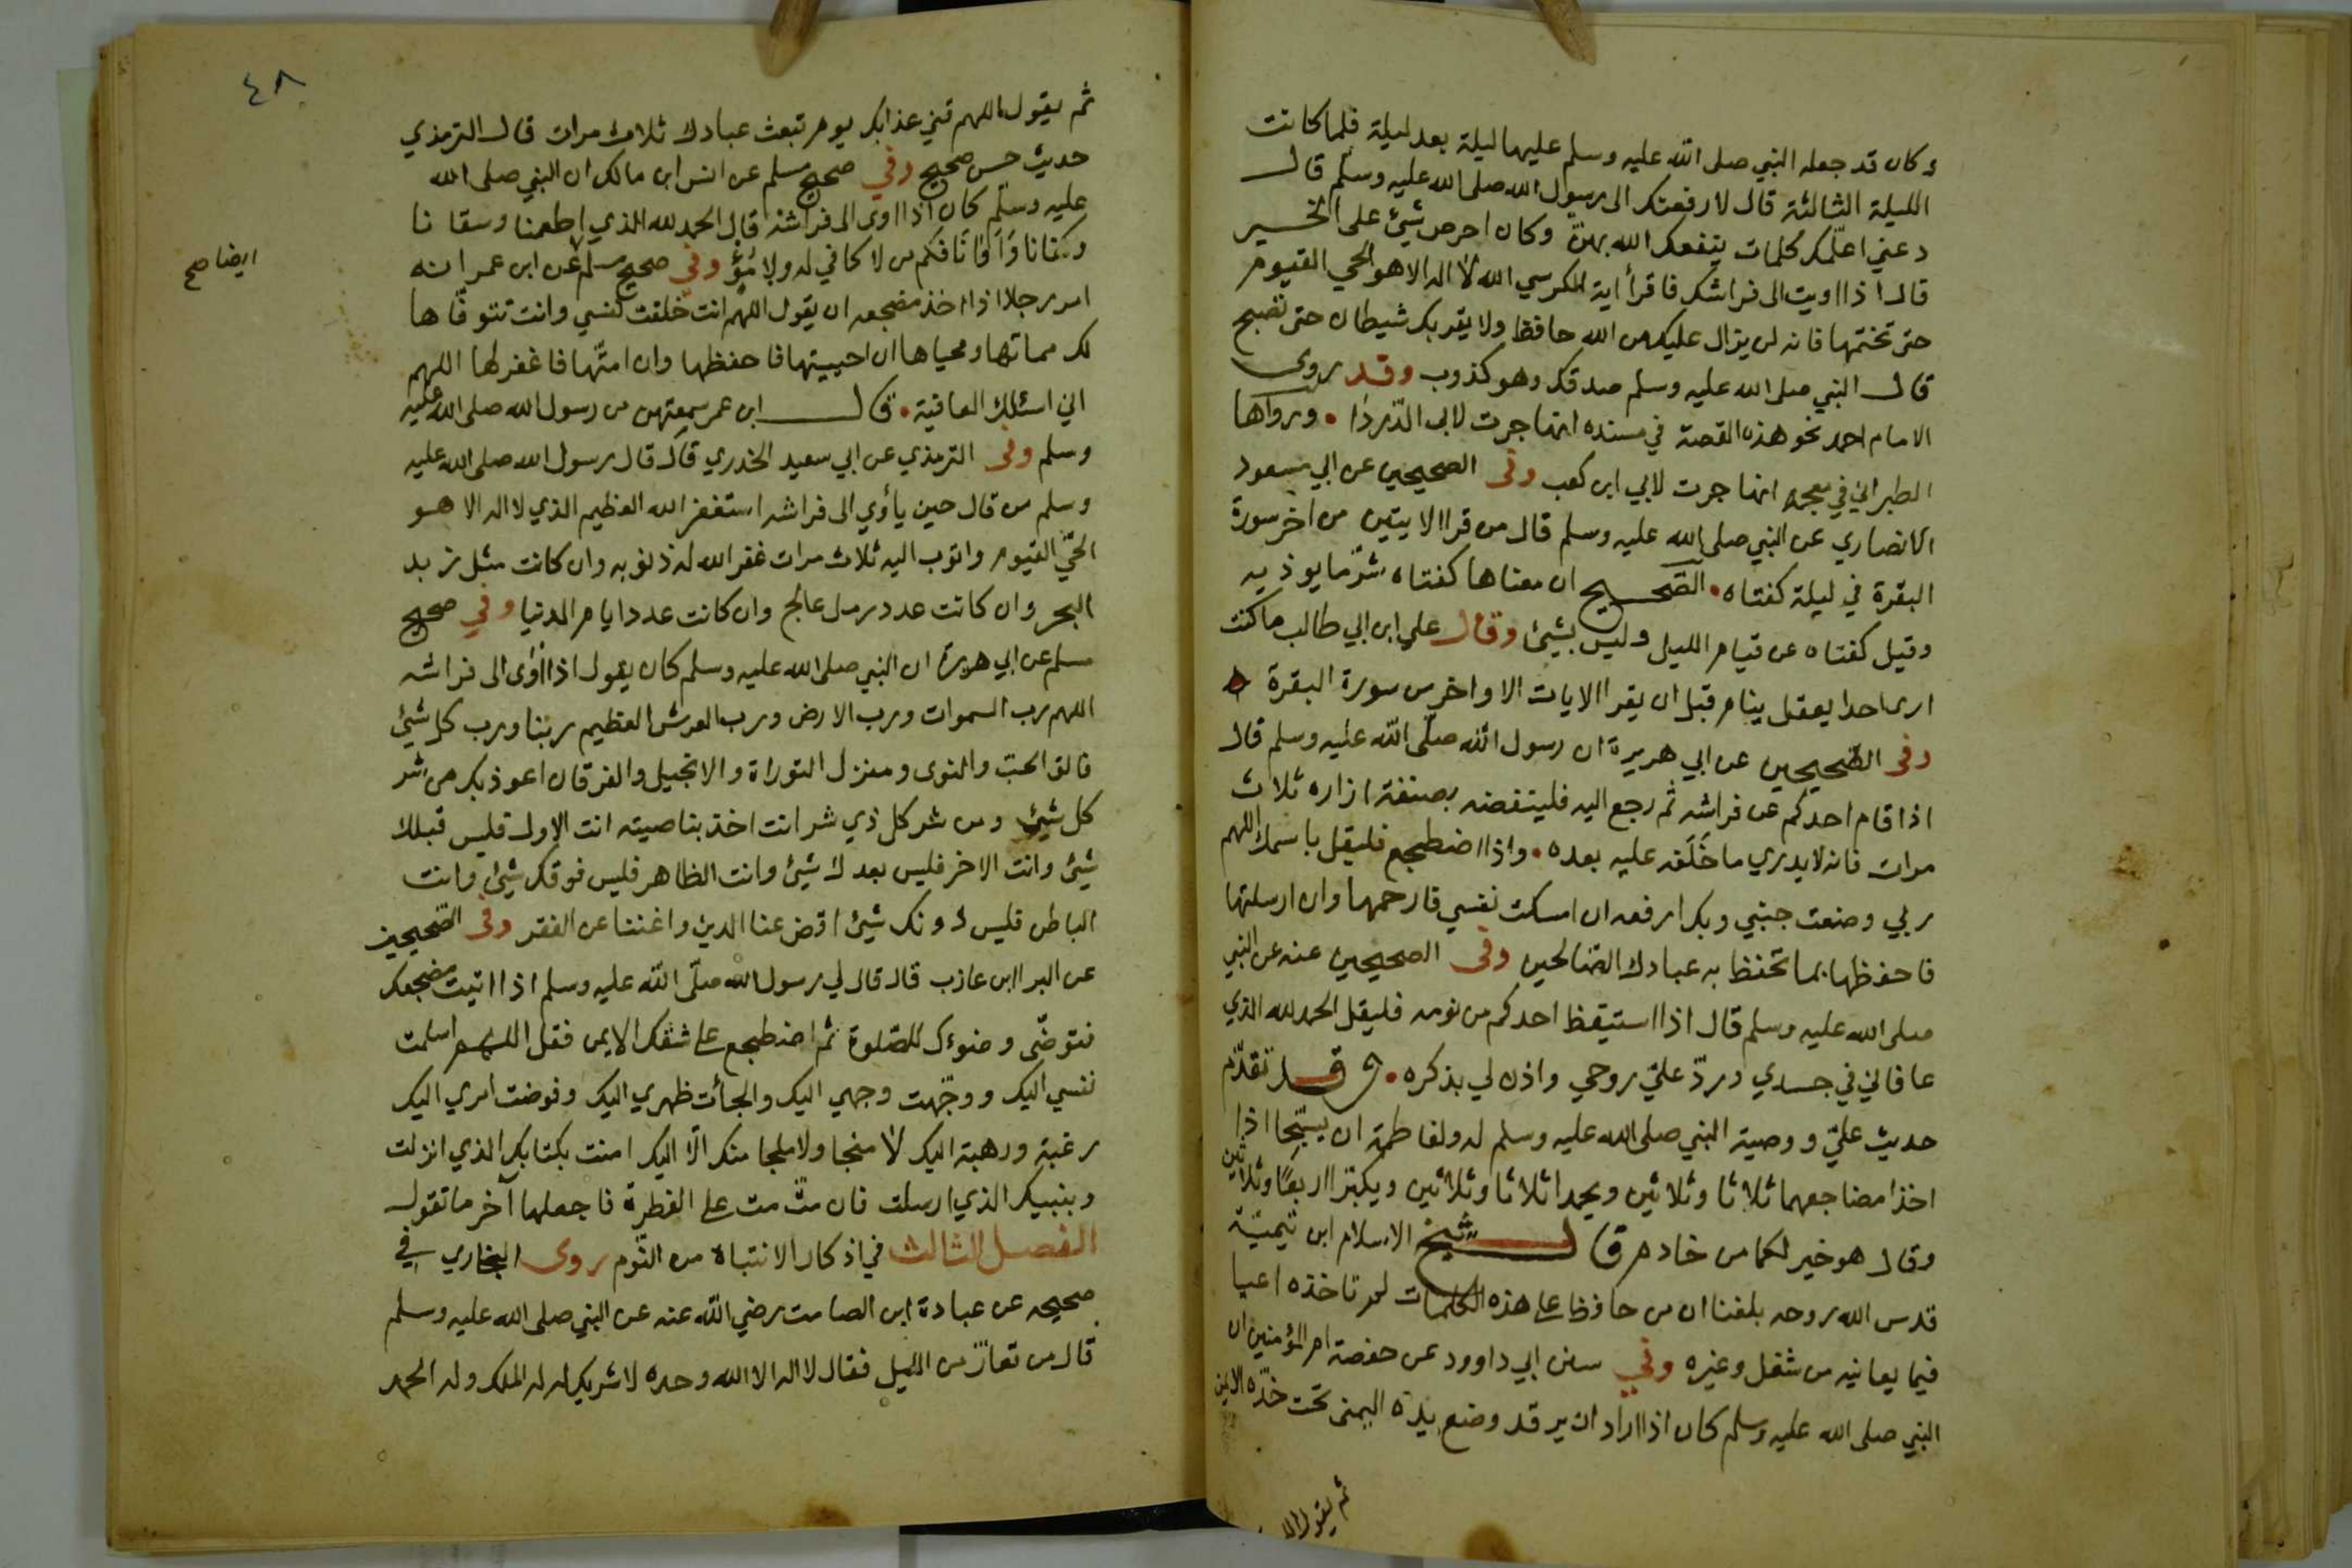 وكان قد جعله النبي صلى الله عليه وسلم عليها ليلة بعد ليلة فلما كانت
الليلة الثالثة قال لارفعنك الى رسول الله صلى الله عليه وسلم قال
دعني اعلمك كلمات ينفعك الله بهنّ وكان احرص شيئ على الخير
قال اذا اويت الى فراشك فاقرأ اية الكرسي الله لا اله الا هو الحي القيوم
حتى تختمها فانه لن يزال عليك من الله حافظ ولا يقربك شيطان حتى تصبح
قال النبي صلى الله عليه وسلم صدقك وهو كذوب وقد روى
الامام احمد نحو هذه القصة في مسنده انها جرت لابى الدّردا • ورواها
الطبراني في معجمه انها جرت لابي ابن كعب وفى الصحيحين عن ابي مسعود
الانصاري عن النبي صلى الله عليه وسلم قال من قرا الايتين من اخر سورة
البقرة في ليلة كفتاه • الصّحيح ان معناها كفتاه شرّ ما يوذيه
وقيل كفتاه عن قيام الليل وليس بشيئ وقال علي ابن ابي طالب ما كنت
ارى احدا يعقل ينام قبل ان يقرا الايات الاواخر من سورة البقرة
وفى الصّحيحين عن ابي هريرة ان رسول الله صلّى الله عليه وسلم قال
اذا قام احدكم عن فراشه ثم رجع اليه فلينفضه بصنفة ازاره ثلاث
مرات فانه لا يدري ما خَلَفه عليه بعده • واذا اضطجع فليقل باسمك اللهم
ربي وضعت جنبي وبك ارفعه ان امسكت نفسي فارحمها وان ارسلتها
فاحفظها بما تحفظ به عبادك الصّالحين وفى الصحيحين عنه عن النبي
صلى الله عليه وسلم قال اذا استيقظ احدكم من نومه فليقل الحمد لله الذي
عافاني في جسدي وردّ عليّ روحي واذن لي بذكره • وقد تقدّم
حديث عليّ ووصية النبي صلى الله عليه وسلم له ولفاطمة ان يسبّحا اذا
اخذا مضاجعهما ثلاثا وثلاثين ويحمدا ثلاثا وثلاثين ويكبّرا اربعًا وثلاثين
وقال هو خير لكما من خادم قال شيخ الاسلام ابن تيميّة
قدس الله روحه بلغنا ان من حافظ على هذه الكلمات لم تاخذه اعيا
فيما يعانيه من شغل وغيره وفي سنن ابي داوود عن حفصة ام المؤمنين ان
النبي صلى الله عليه وسلم كان اذا اراد ان يرقد وضع يده اليمنى تحت خدّه الايمن
ثم يقول
٤٨
ثم يقول اللهم قني عذابك يوم تبعث عبادك ثلاث مرات قال الترمذي
حديث حسن صحيح وفي صحيح مسلم عن انس ابن مالك ان النبي صلى الله
عليه وسلّم كان اذا اوى الى فراشه قال الحمد لله الذي اطعمنا وسقانا
وكفانا وَاَوَانَا فكم من لا كافي له ولا مُؤو وفى صحيح مسلم عن ابن عمر انه
ايضا صح
امر رجلا اذا اخذ مضجعه ان يقول اللهم انت خلقت نفسي وانت تتوفّاها
لك مماتها ومحياها ان احييتها فاحفظها وان امتّها فاغفر لها اللهم
اني اسئلك العافية • قال ابن عمر سمعتهن من رسول الله صلى الله عليه
وسلم وفى الترمذي عن ابي سعيد الخدري قال قال رسول الله صلى الله عليه
وسلم من قال حين يأوي الى فراشه استغفر الله العظيم الذي لا اله الا هو
الحيّ القيوم واتوب اليه ثلاث مرات غفر الله له ذنوبه وان كانت مثل زبد
البحر وان كانت عدد رمل عالج وان كانت عدد ايام الدنيا وفي صحيح
مسلم عن ابي هريرة ان النبي صلى الله عليه وسلم كان يقول اذا اوى الى فراشه
اللهم رب السموات ورب الارض ورب العرش العظيم ربنا ورب كل شيئ
فالق الحبّ والنوى ومنزل التوراة والانجيل والفرقان اعوذ بك من شر
كل شيئ ومن شر كل ذي شر انت اخذ بناصيته انت الاول فليس قبلك
شيئ وانت الاخر فليس بعدك شيئ وانت الظاهر فليس فوقك شيئ وانت
الباطن فليس دونك شيئ اقض عنا الدين واغننا عن الفقر وفى الصّحيحين
عن البرا ابن عازب قال قال لي رسول الله صلّى الله عليه وسلم اذا اتيت مضجعك
فتوضّى وضوءك للصّلوة ثم اضطجع على شقك الايمن فقل اللهم اسلمت
نفسي اليك ووجّهت وجهي اليك والجأت ظهري اليك وفوضت امري اليك
رغبة ورهبة اليك لا منجا ولا ملجا منك الّا اليك امنت بكتابك الذي انزلت
وبنبيك الذي ارسلت فان متّ مت على الفطرة فاجعلها آخر ما تقول
الفصل الثالث في اذكار الانتباه من النّوم روى البخاري في
صحيحه عن عبادة ابن الصامت رضي الله عنه عن النبي صلى الله عليه وسلم
قال من تعارّ من الليل فقال لا اله الا الله وحده لا شريك له له الملك وله الحمد